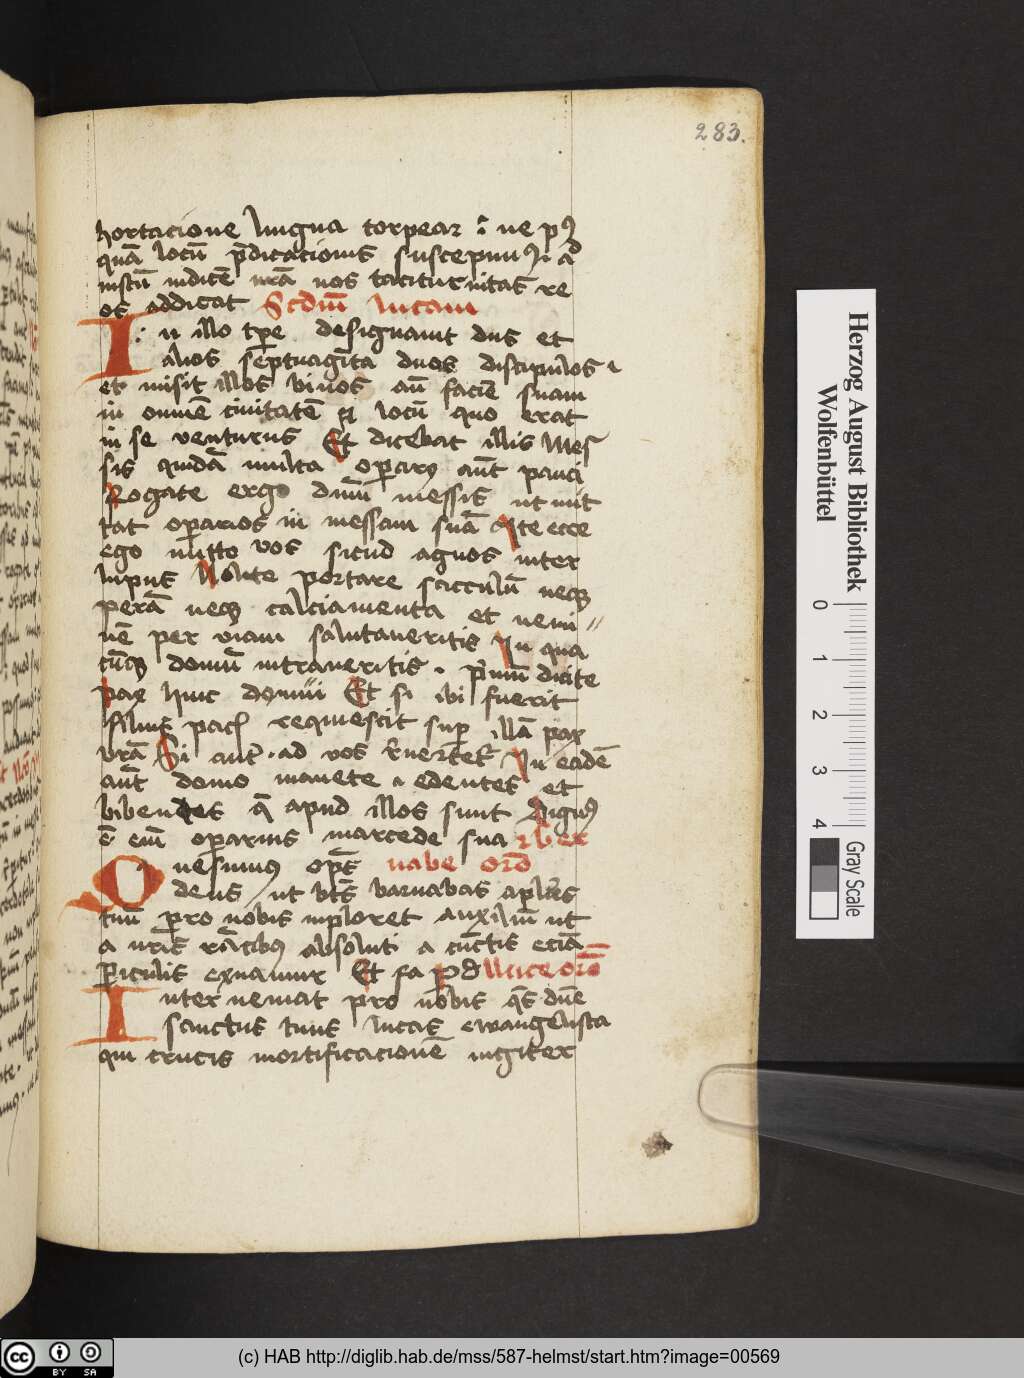 283.
hortacione lingua torpeat : ne pꝰ
quā locū p̄dicacionis suscepimꝰ i ad
iustū iudicē nr̄ā nos taciturnitas re
os addicat Scdm̄ lucam
In illo tp̄e designauit dn̄s et
alios septuagīta duos discipulos
et misit illos binos an̄ faciē suam
in omnē ciuitatē et locū quo erat
in se venturus Et dicebat illis Mes
sis quidā multa operarij aūt pauci
Rogate ergo dnm̄ messis ut mit
tat operarios in messam suā Ite ecce
ego mitto vos sicud agnos inter
lupus Nolite portare sacculū neqꝫ
perā neqꝫ calciamenta et nemi
nē per viam salutaueritis In qua
cūqꝫ domū intraueritis . p̄mum dicite
pax huic domui Et si ibi fuerit
filius pacis requiescit sup illā pax
vrā Si aut ad vos reuertet In eadē
aūt domo manete edentes et
bibentes q̄ apud illos sunt Dignꝰ
ē em̄ operarius marcede sua
Quesumus op̄s nabe ord
deus ut bt̄s barnabas aplus
tuus pro nobis inploret auxiliū ut
a nr̄is rātibꝰ absoluti a cūctis eciā
periculis exuamur Et fa p d luce
Interueniat pro nobis qs dn̄e
sanctus tuus lucas ewangelista
qui crucis mortificacionē iugiter
Herzog August Bibliothek
Wolfenbüttel
0 1 2 3 4
Gray Scale
cc BY SA
(c) HAB http://diglib.hab.de/mss/587-helmst/start.htm?image=00569